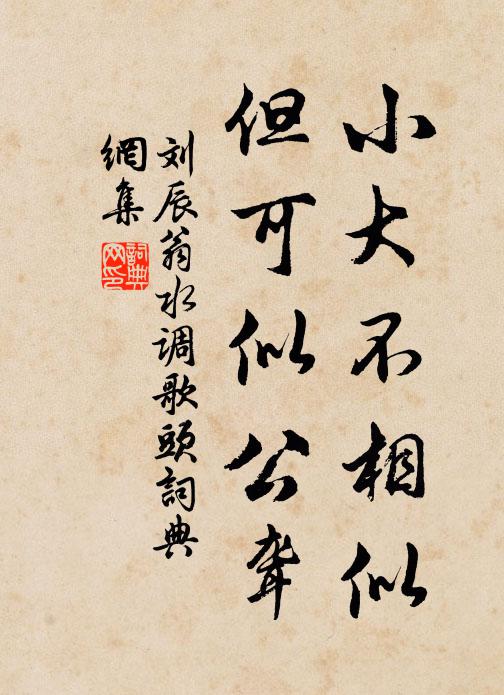 小大不相似
但可似公聋
刘辰翁水调歌頭詞典
網集
詞典
网印